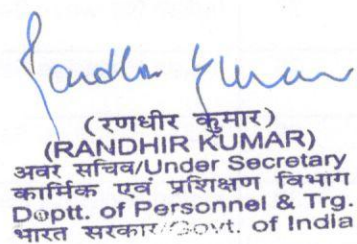 Randhir Kumar
(रणधीर कुमार)
(RANDHIR KUMAR)
अवर सचिव/Under Secretary
कार्मिक एवं प्रशिक्षण विभाग
Deptt. of Personnel & Trg.
भारत सरकार/Govt. of India